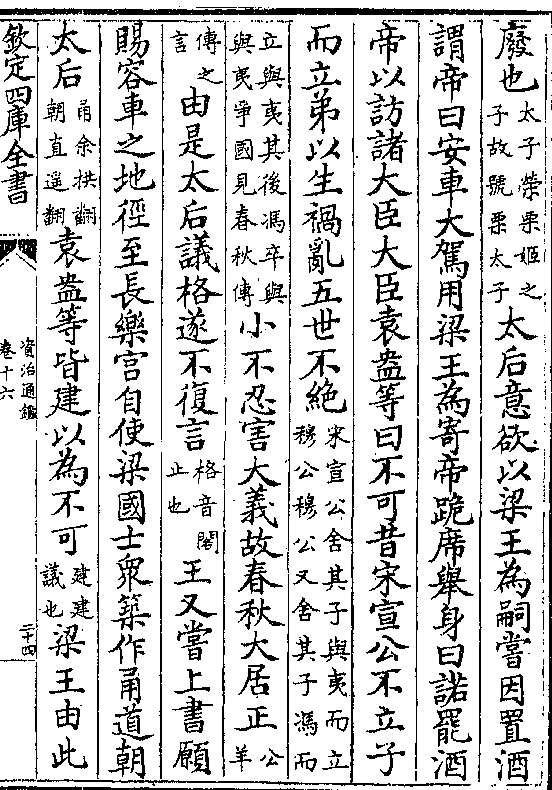 廢也太子榮栗姬之子故號栗太子太后意欲以梁王為嗣嘗因置酒
謂帝曰安車大駕用梁王為寄帝跪席舉身曰諾罷酒
帝以訪諸大臣大臣袁盎等曰不可昔宋宣公不立子
而立弟以生禍亂五世不絶宋宣公舍其子與夷而立穆公穆公又舍其子馮而
立與夷其後馮卒與與夷爭國見春秋傳小不忍害大義故春秋大居正公羊
傳之言由是太后議格遂不復言格音閣止也王又嘗上書願
賜容車之地徑至長樂宫自使梁國士衆築作甬道朝
太后甬余拱翻朝直遥翻袁盎等皆建以為不可建建議也梁王由此
欽定四庫全書
資治通鑑
卷十六
三十四